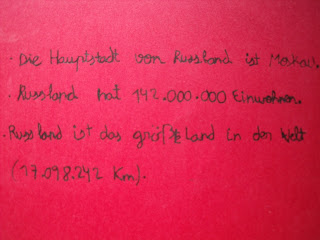 · Die Hauptstadt von Russland ist Moskau.
· Russland hat 142.000.000 Einwohner.
· Russland ist das größte Land in der Welt
(17.098.242 Km).